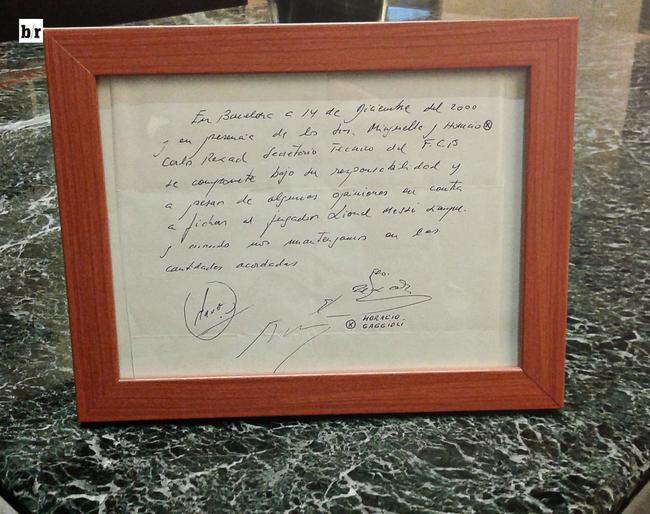 br
En Barcelona a 14 de Diciembre del 2000
y en presencia de los Srs. Minguella y Horacio ⓧ
Carlo Rexach Secretario Tecnico del F.C.B
se compromete bajo su responsabilidad y
a pesar de algunas opiniones en contra
a fichar al jugador Lionel Messi siempre
y cuando nos mantengamos en las
cantidades acordadas
ⓧ HORACIO
GAGGIOLI